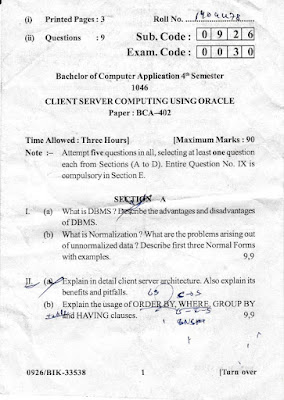 (i) Printed Pages : 3 Roll No.
(ii) Questions : 9 Sub. Code : 0 9 2 6
Exam. Code : 0 0 3 0
Bachelor of Computer Application 4th Semester
1046
CLIENT SERVER COMPUTING USING ORACLE
Paper : BCA–402
Time Allowed : Three Hours] [Maximum Marks : 90
Note :– Attempt five questions in all, selecting at least one question
each from Sections (A to D). Entire Question No. IX is
compulsory in Section E.
SECTION A
I. (a) What is DBMS ? Describe the advantages and disadvantages
of DBMS.
(b) What is Normalization ? What are the problems arising out
of unnormalized data ? Describe first three Normal Forms
with examples. 9,9
II. (a) Explain in detail client server architecture. Also explain its
benefits and pitfalls.
(b) Explain the usage of ORDER BY, WHERE, GROUP BY
and HAVING clauses. 9,9
0926/BIK-33538 1 [Turn over